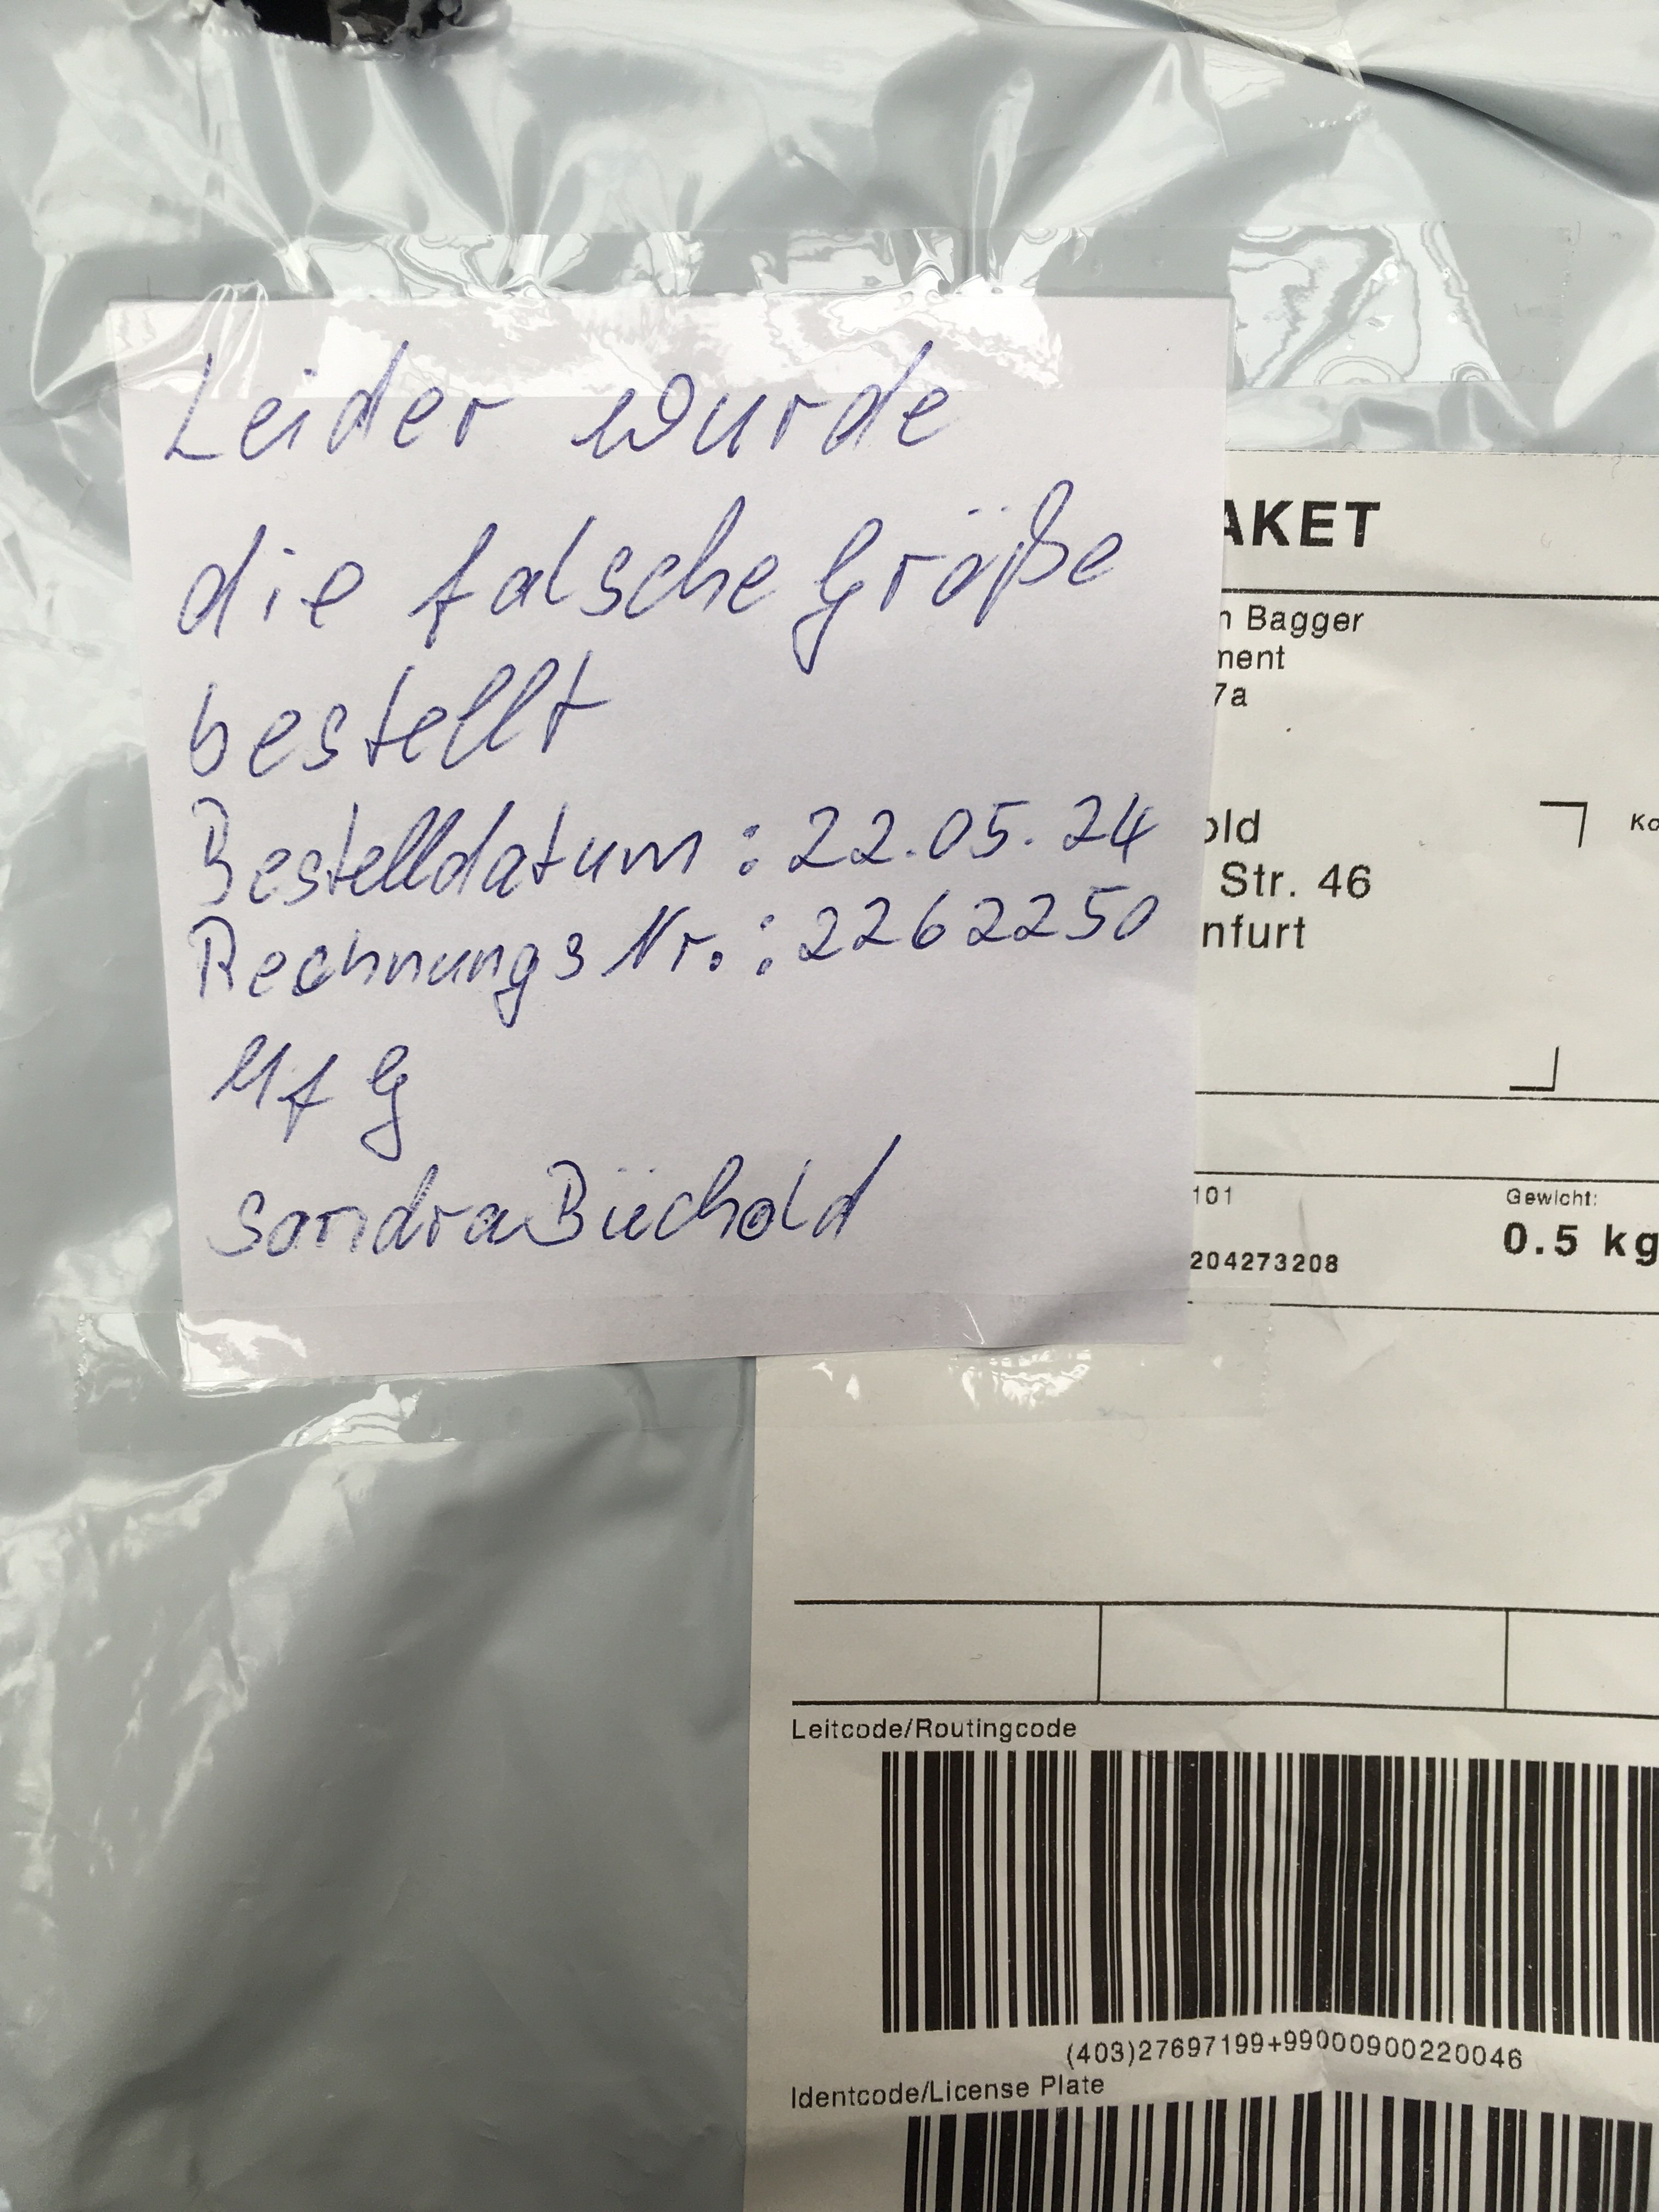 Leider wurde
die falsche Größe
bestellt
Bestelldatum: 22.05.24
Rechnungs Nr.: 2262250
MfG
Sandra Büchold
AKET
n Bagger
ment
7a
old
Str. 46
nfurt
Ko
101
204273208
Gewicht:
0.5 kg
Leitcode/Routingcode
(403)27697199+99000900220046
Identcode/License Plate